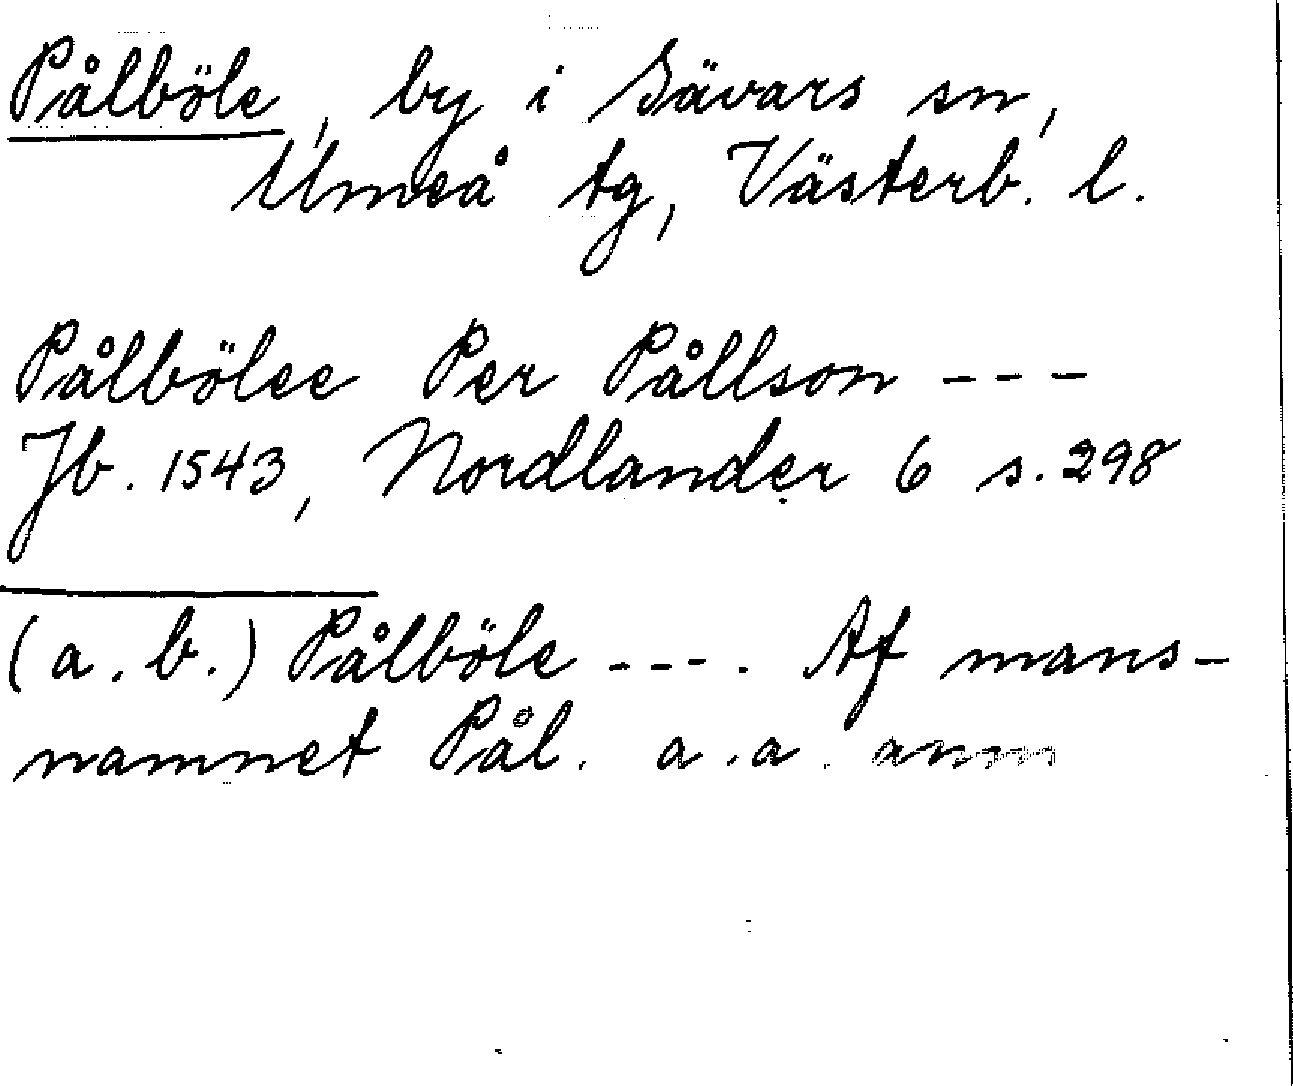 Pålböle, by i Sävars sn,
Umeå tg, Västerb. l.
Pålbölee Per Pållson ---
Jb. 1543, Nordlander 6 s. 298
(a. b.) Pålböle ---. Af mans-
namnet Pål. a. a. anm